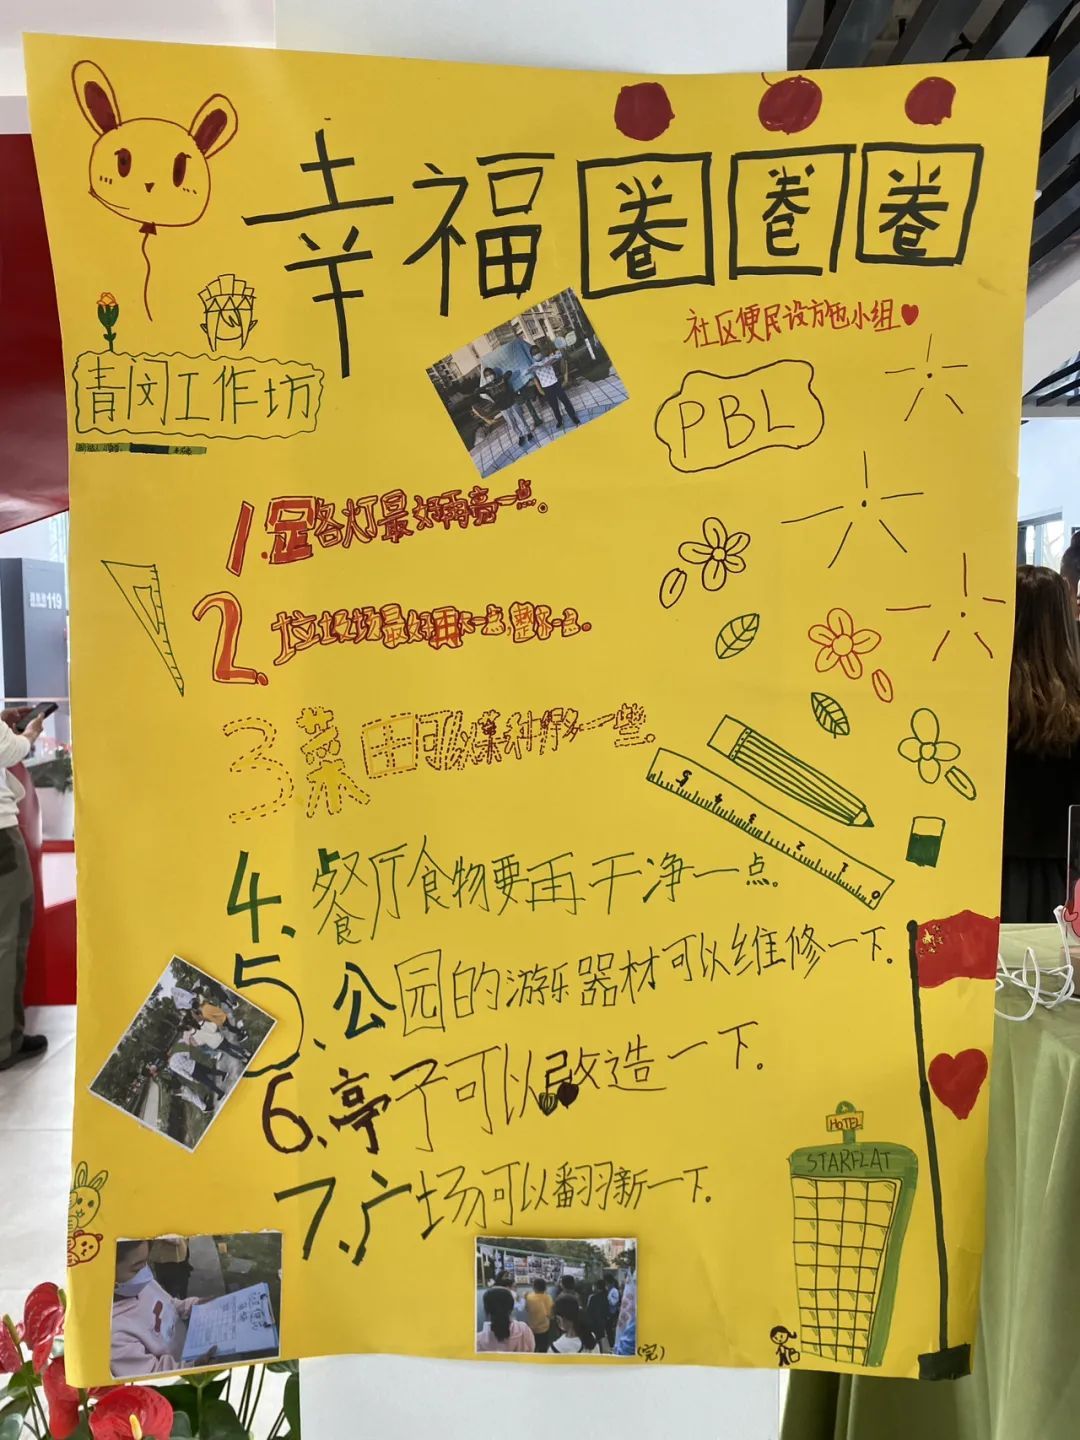 幸福圈圈圈
社区便民设施小组
青闵工作坊
PBL
1.足各灯最好再亮一点。
2.垃圾场最好再不一点,整不一点。
3菜田可以菜种得多一些。
5 4 3 2 1 0
4、餐厅食物要再干净一点。
5、公园的游乐器材可以维修一下。
6、亭子可以改造一下。
7、广场可以翻新一下。
HOTEL
STARFLAT
(完)
119